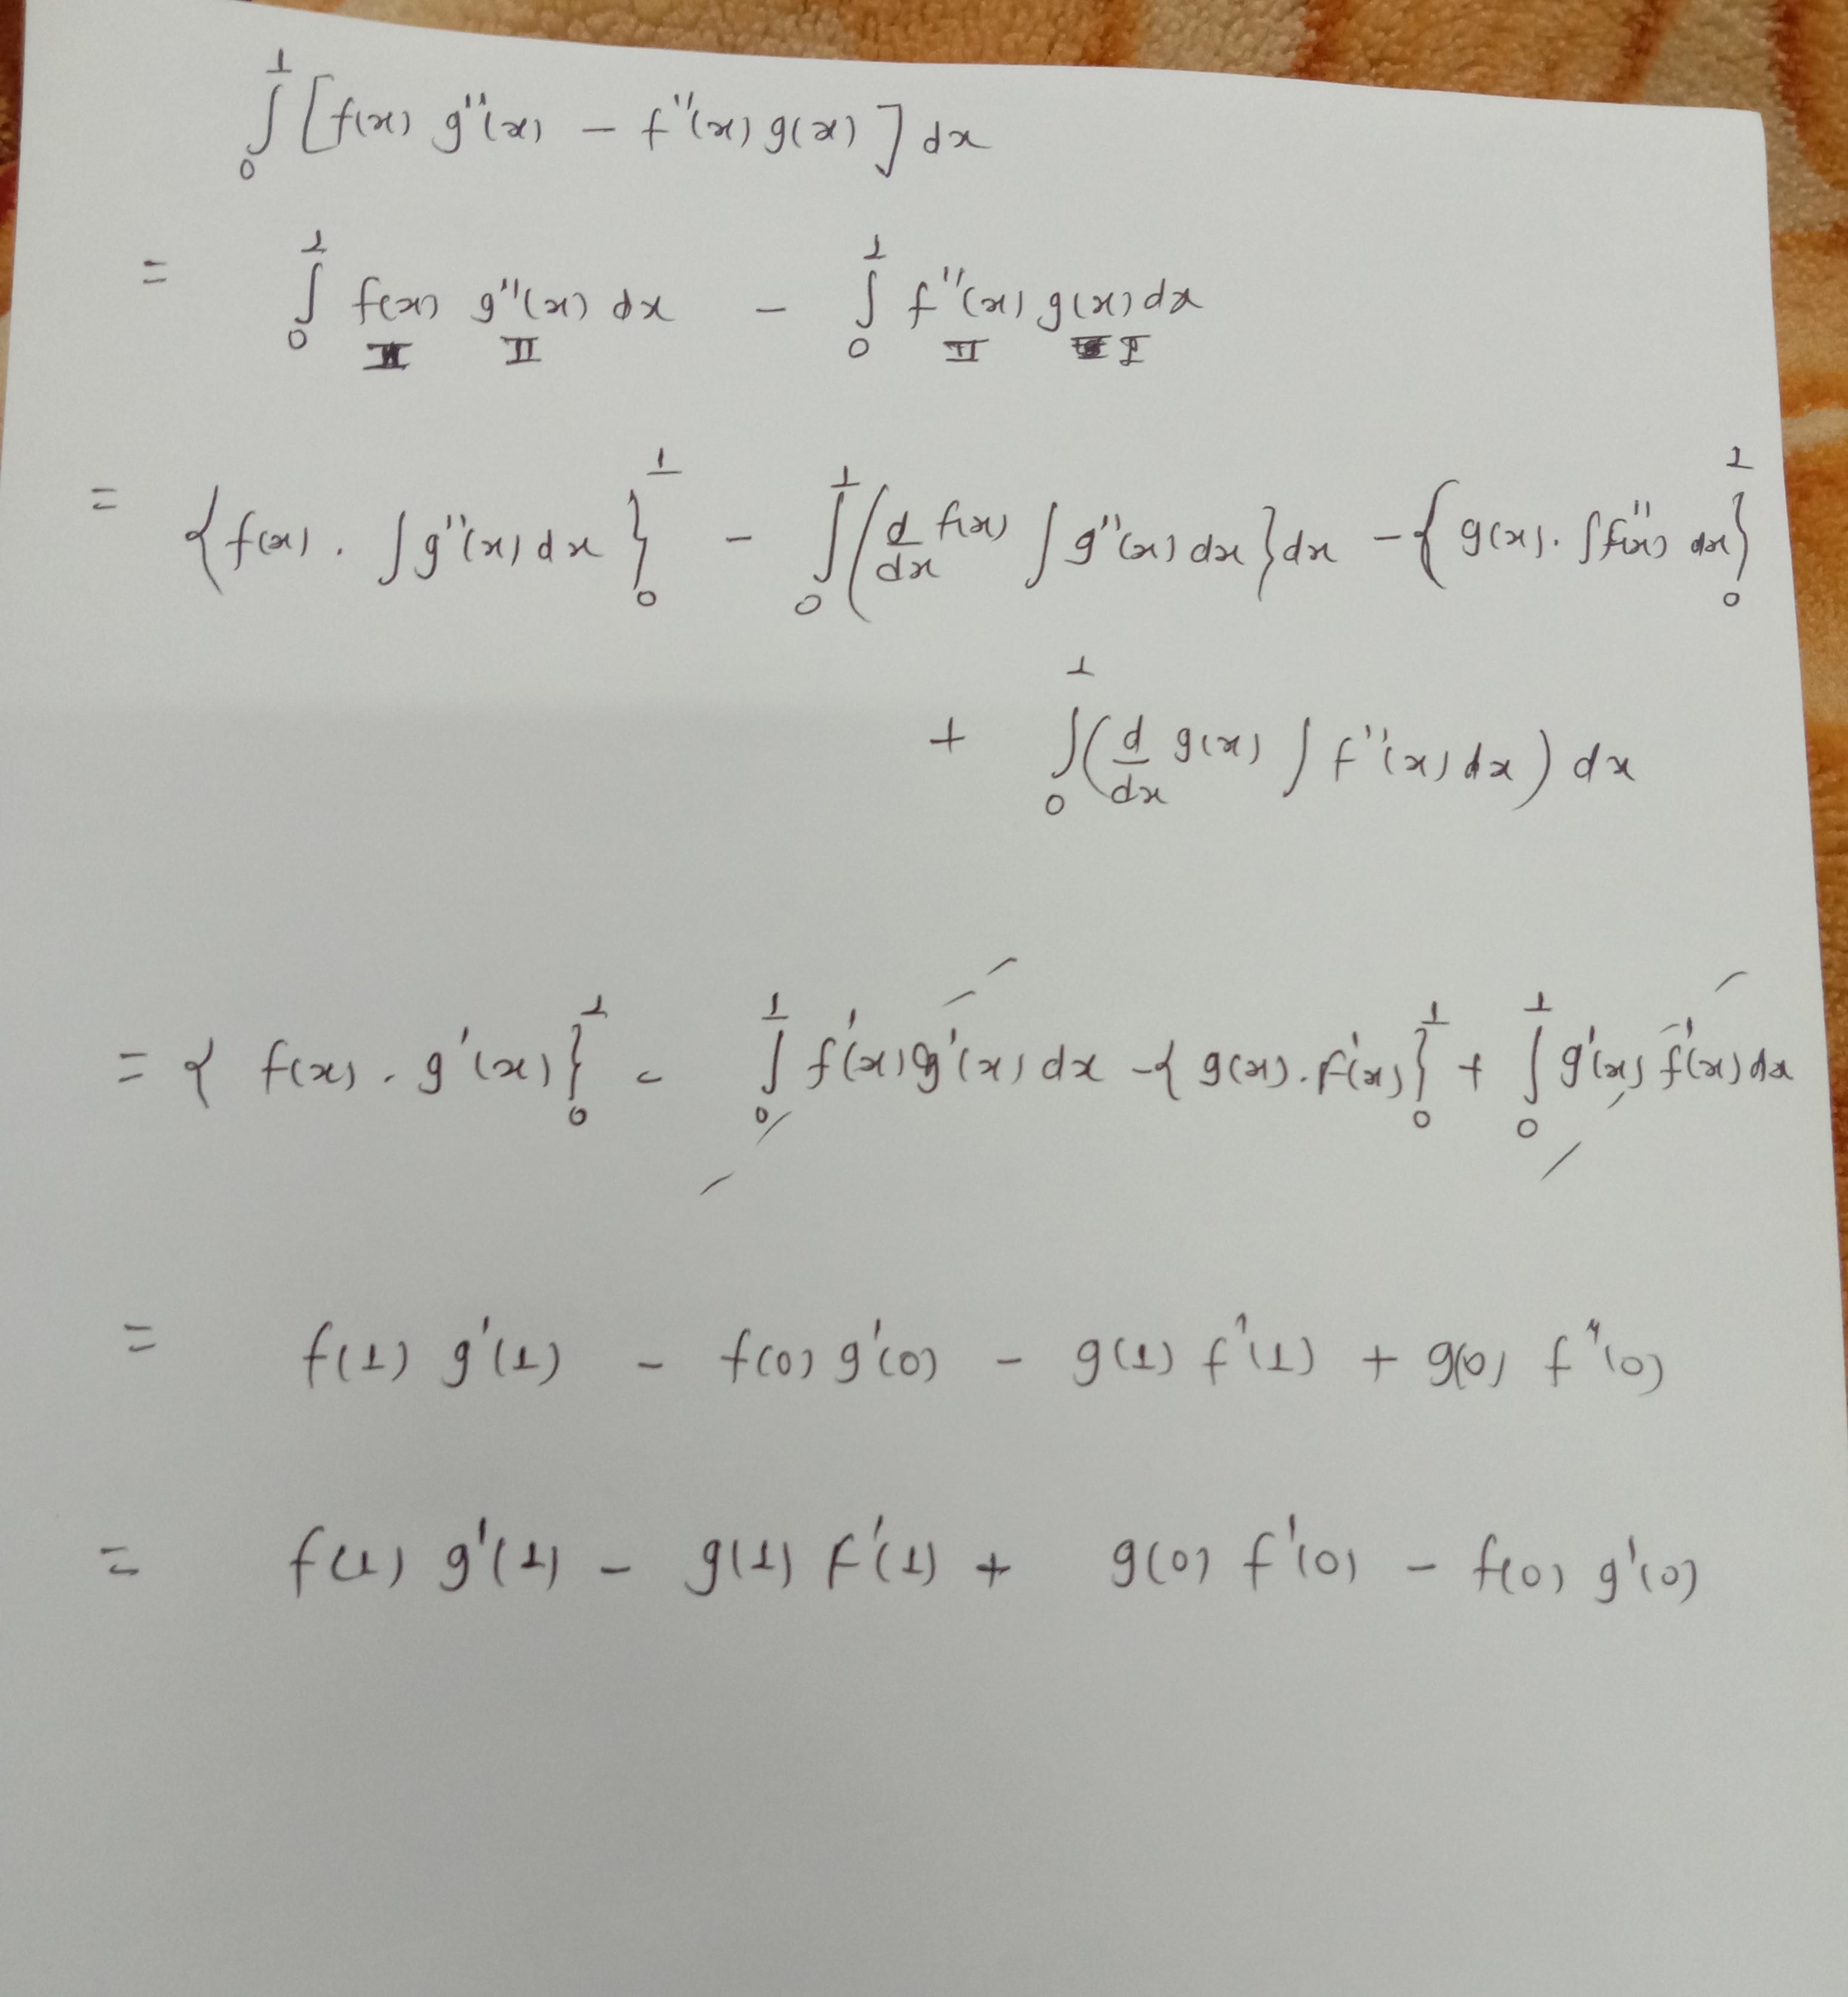 ∫₀¹ [f(x) g''(x) − f''(x) g(x)] dx
= ∫₀¹ f(x) g''(x) dx − ∫₀¹ f''(x) g(x) dx
I II II I
= {f(x) . ∫g''(x) dx}₀¹ − ∫₀¹ (d/dx f(x) ∫g''(x) dx} dx − {g(x). ∫f''(x) dx}₀¹
+ ∫₀¹ (d/dx g(x) ∫ f''(x) dx) dx
= { f(x) . g'(x)}₀¹ − ∫₀¹ f'(x) g'(x) dx − { g(x). f'(x)}₀¹ + ∫₀¹ g'(x) f'(x) dx
= f(1) g'(1) − f(0) g'(0) − g(1) f'(1) + g(0) f'(0)
= f(1) g'(1) − g(1) f'(1) + g(0) f'(0) − f(0) g'(0)